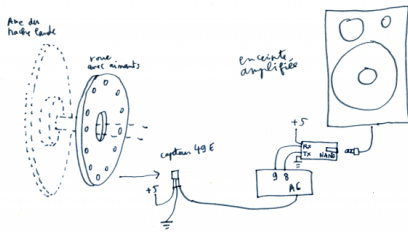 Axe du
roue
avec aimants
enceinte
amplifiée
capteur 49 E
+5
+5
RX
TX
NANO
9 8
A6